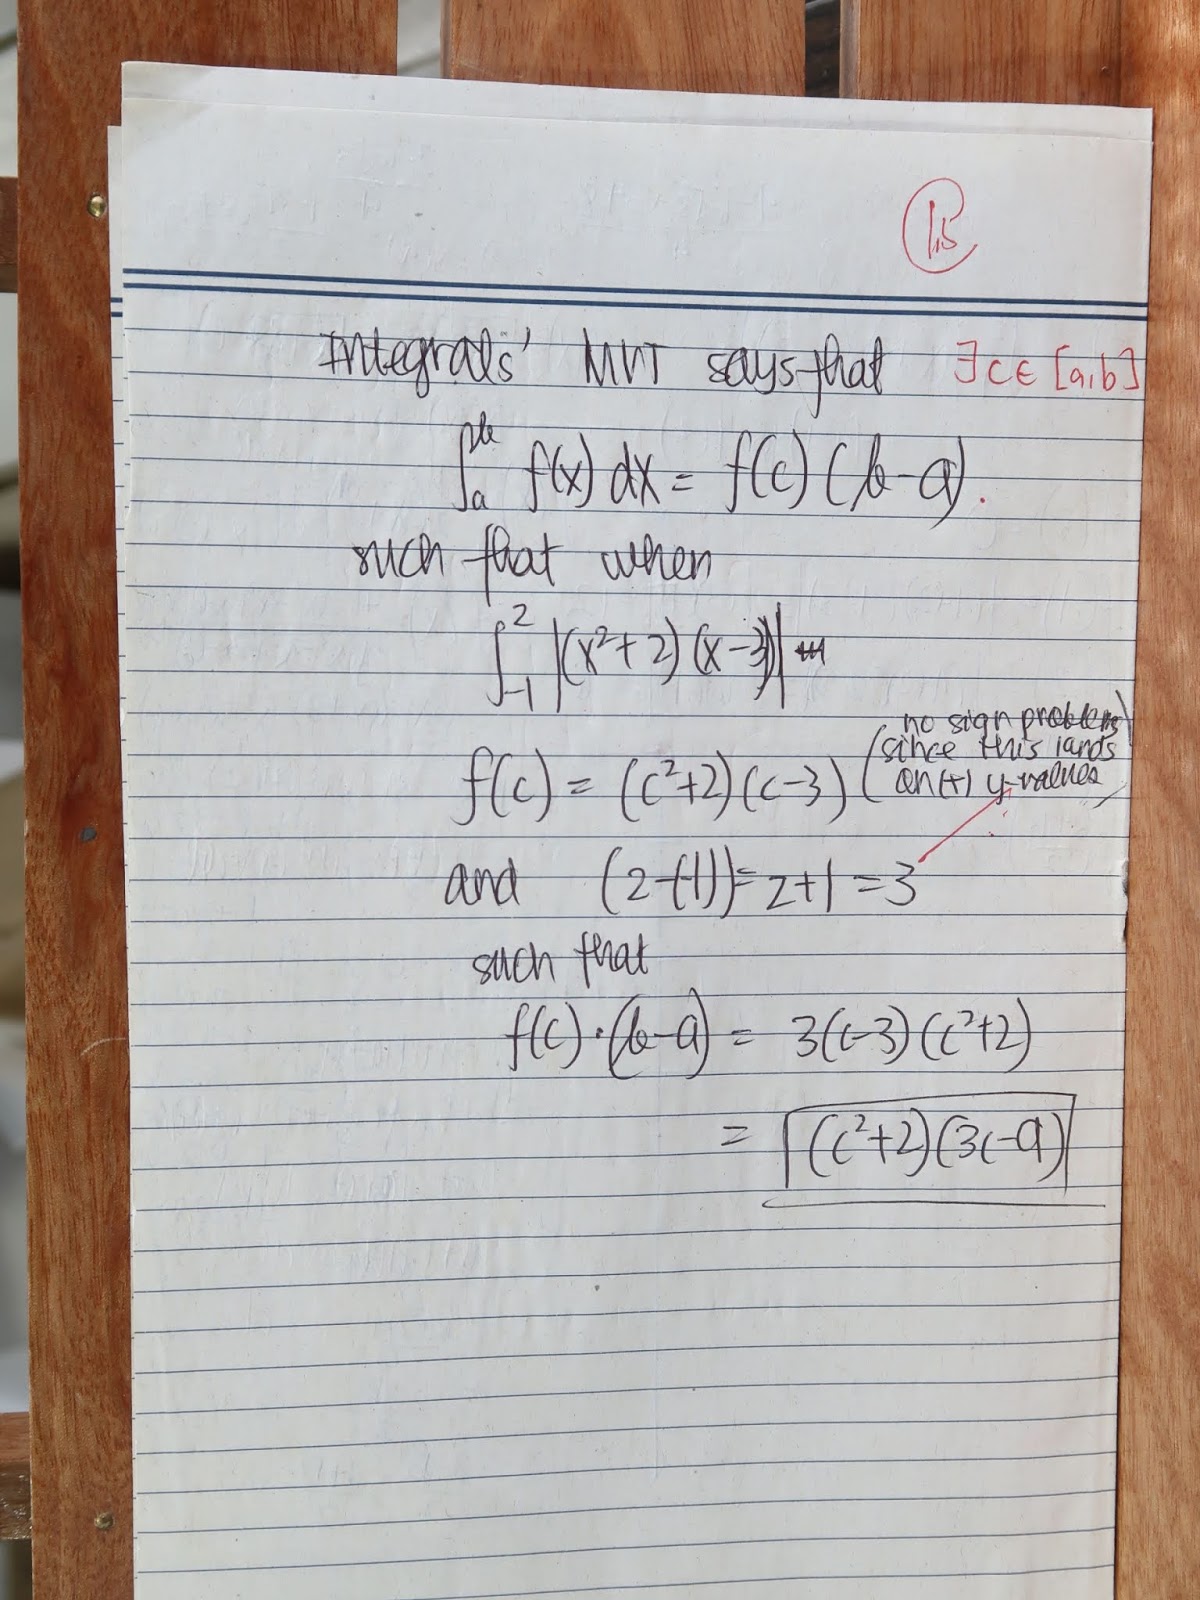 1.5
Integrals' MVT says that ∃ c ∈ [a,b]
∫_a^b f(x) dx = f(c) (b-a).
such that when
∫_{-1}^2 |(x²+2)(x-3)|
no sign problems
(since this lands
f(c) = (c²+2)(c-3)
on (+) y-values)
and (2-(-1)) = 2+1 = 3
such that
f(c)·(b-a) = 3(c-3)(c²+2)
= (c²+2)(3c-9)